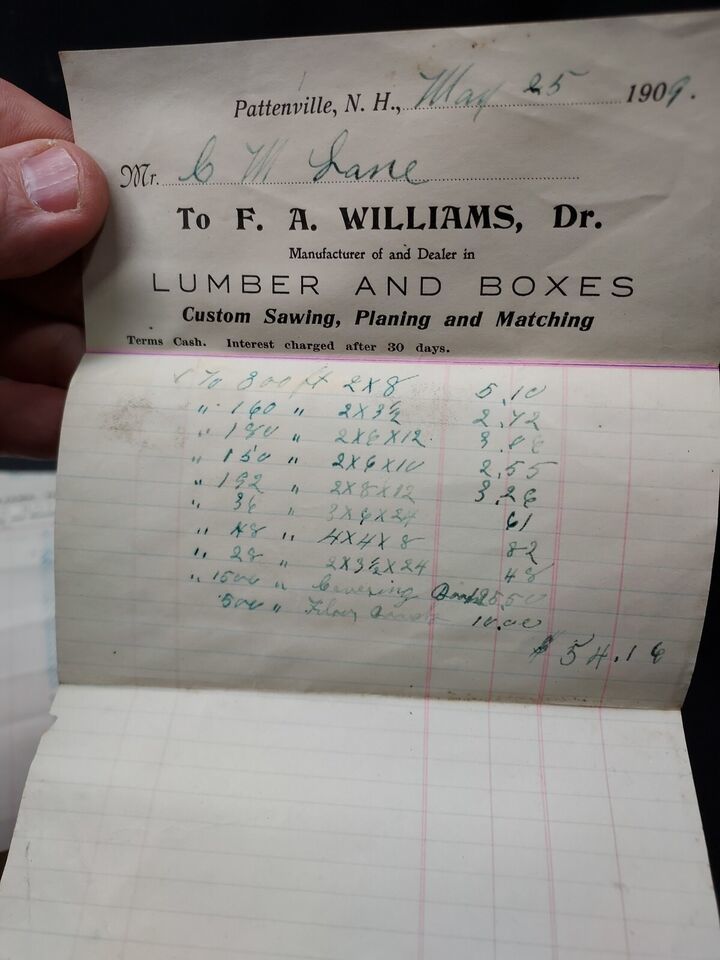 Pattenville, N. H., May 25 1909.
Mr. C M Lane
To F. A. WILLIAMS, Dr.
Manufacturer of and Dealer in
LUMBER AND BOXES
Custom Sawing, Planing and Matching
Terms Cash. Interest charged after 30 days.
To 300 ft 2X8 5.10
" 160 " 2X3½ 2.72
" 180 " 2X6X12 3.06
" 150 " 2X6X10 2.55
" 192 " 2X8X12 3.26
" 36 " 3X6X24 61
" 48 " 4X4X8 82
" 28 " 2X3½X24 48
" 1500 " Covering Boards 25.50
500 " Floor Boards 10.00
$54.10